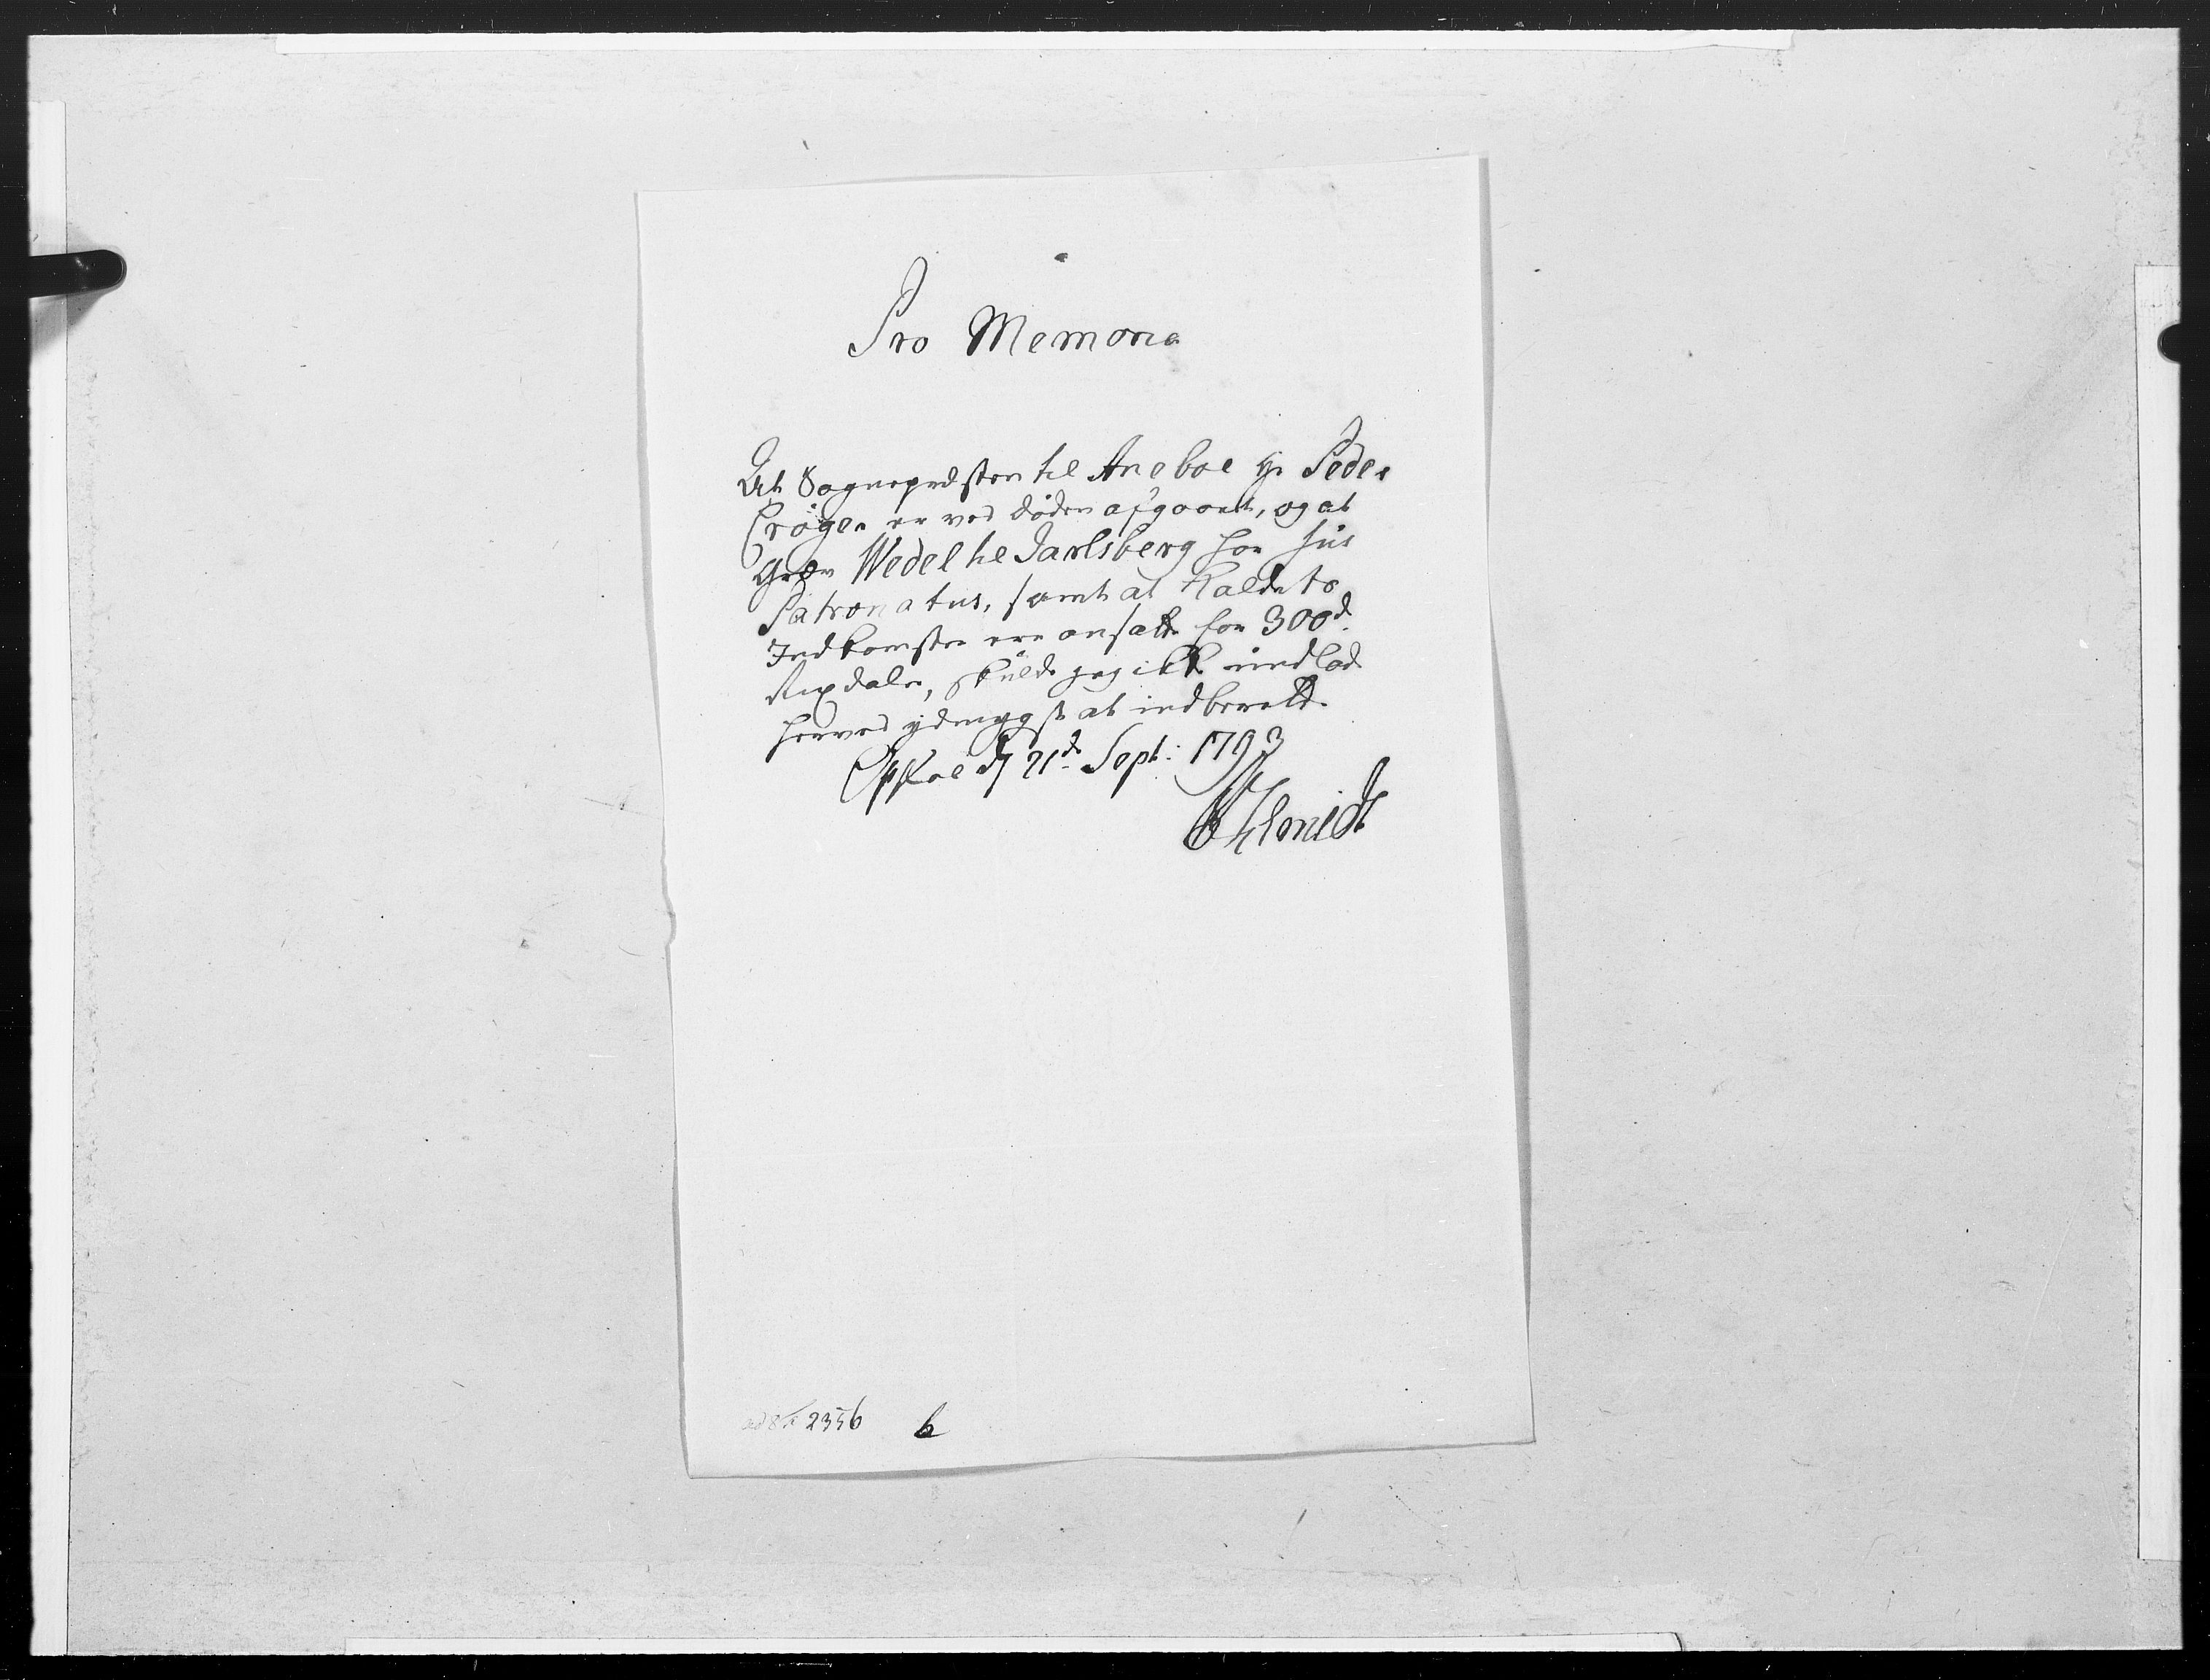 Pro Memoria
At Sognepræsten til Aneboe Hr Peder
Crøger er ved Døden afgaaet, og at
Grev Wedel til Jarlsberg har Jus
Patronatus, samt at Kaldets
Indkomster ere ansatte for 300d
Rixdaler, skulde jeg ikke undlade
herved ydmygst at indberette.
Opsloe d 21de Sept: 1793
Schmidt
2356 b